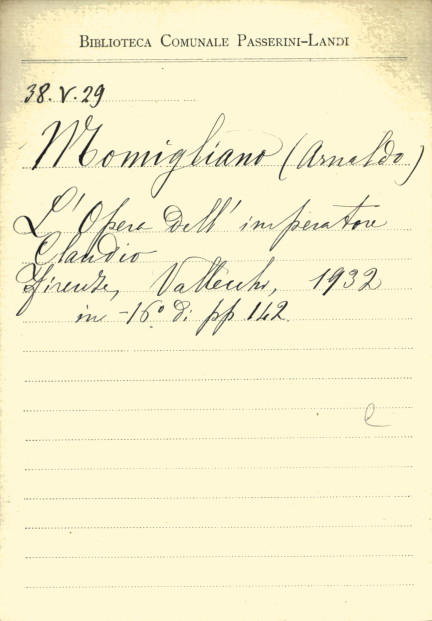 BIBLIOTECA COMUNALE PASSERINI-LANDI
38.V.29
Momigliano (Arnaldo)
L'Opera dell'imperatore
Claudio
Firenze, Vallecchi, 1932
in -16° di pp 142.
e